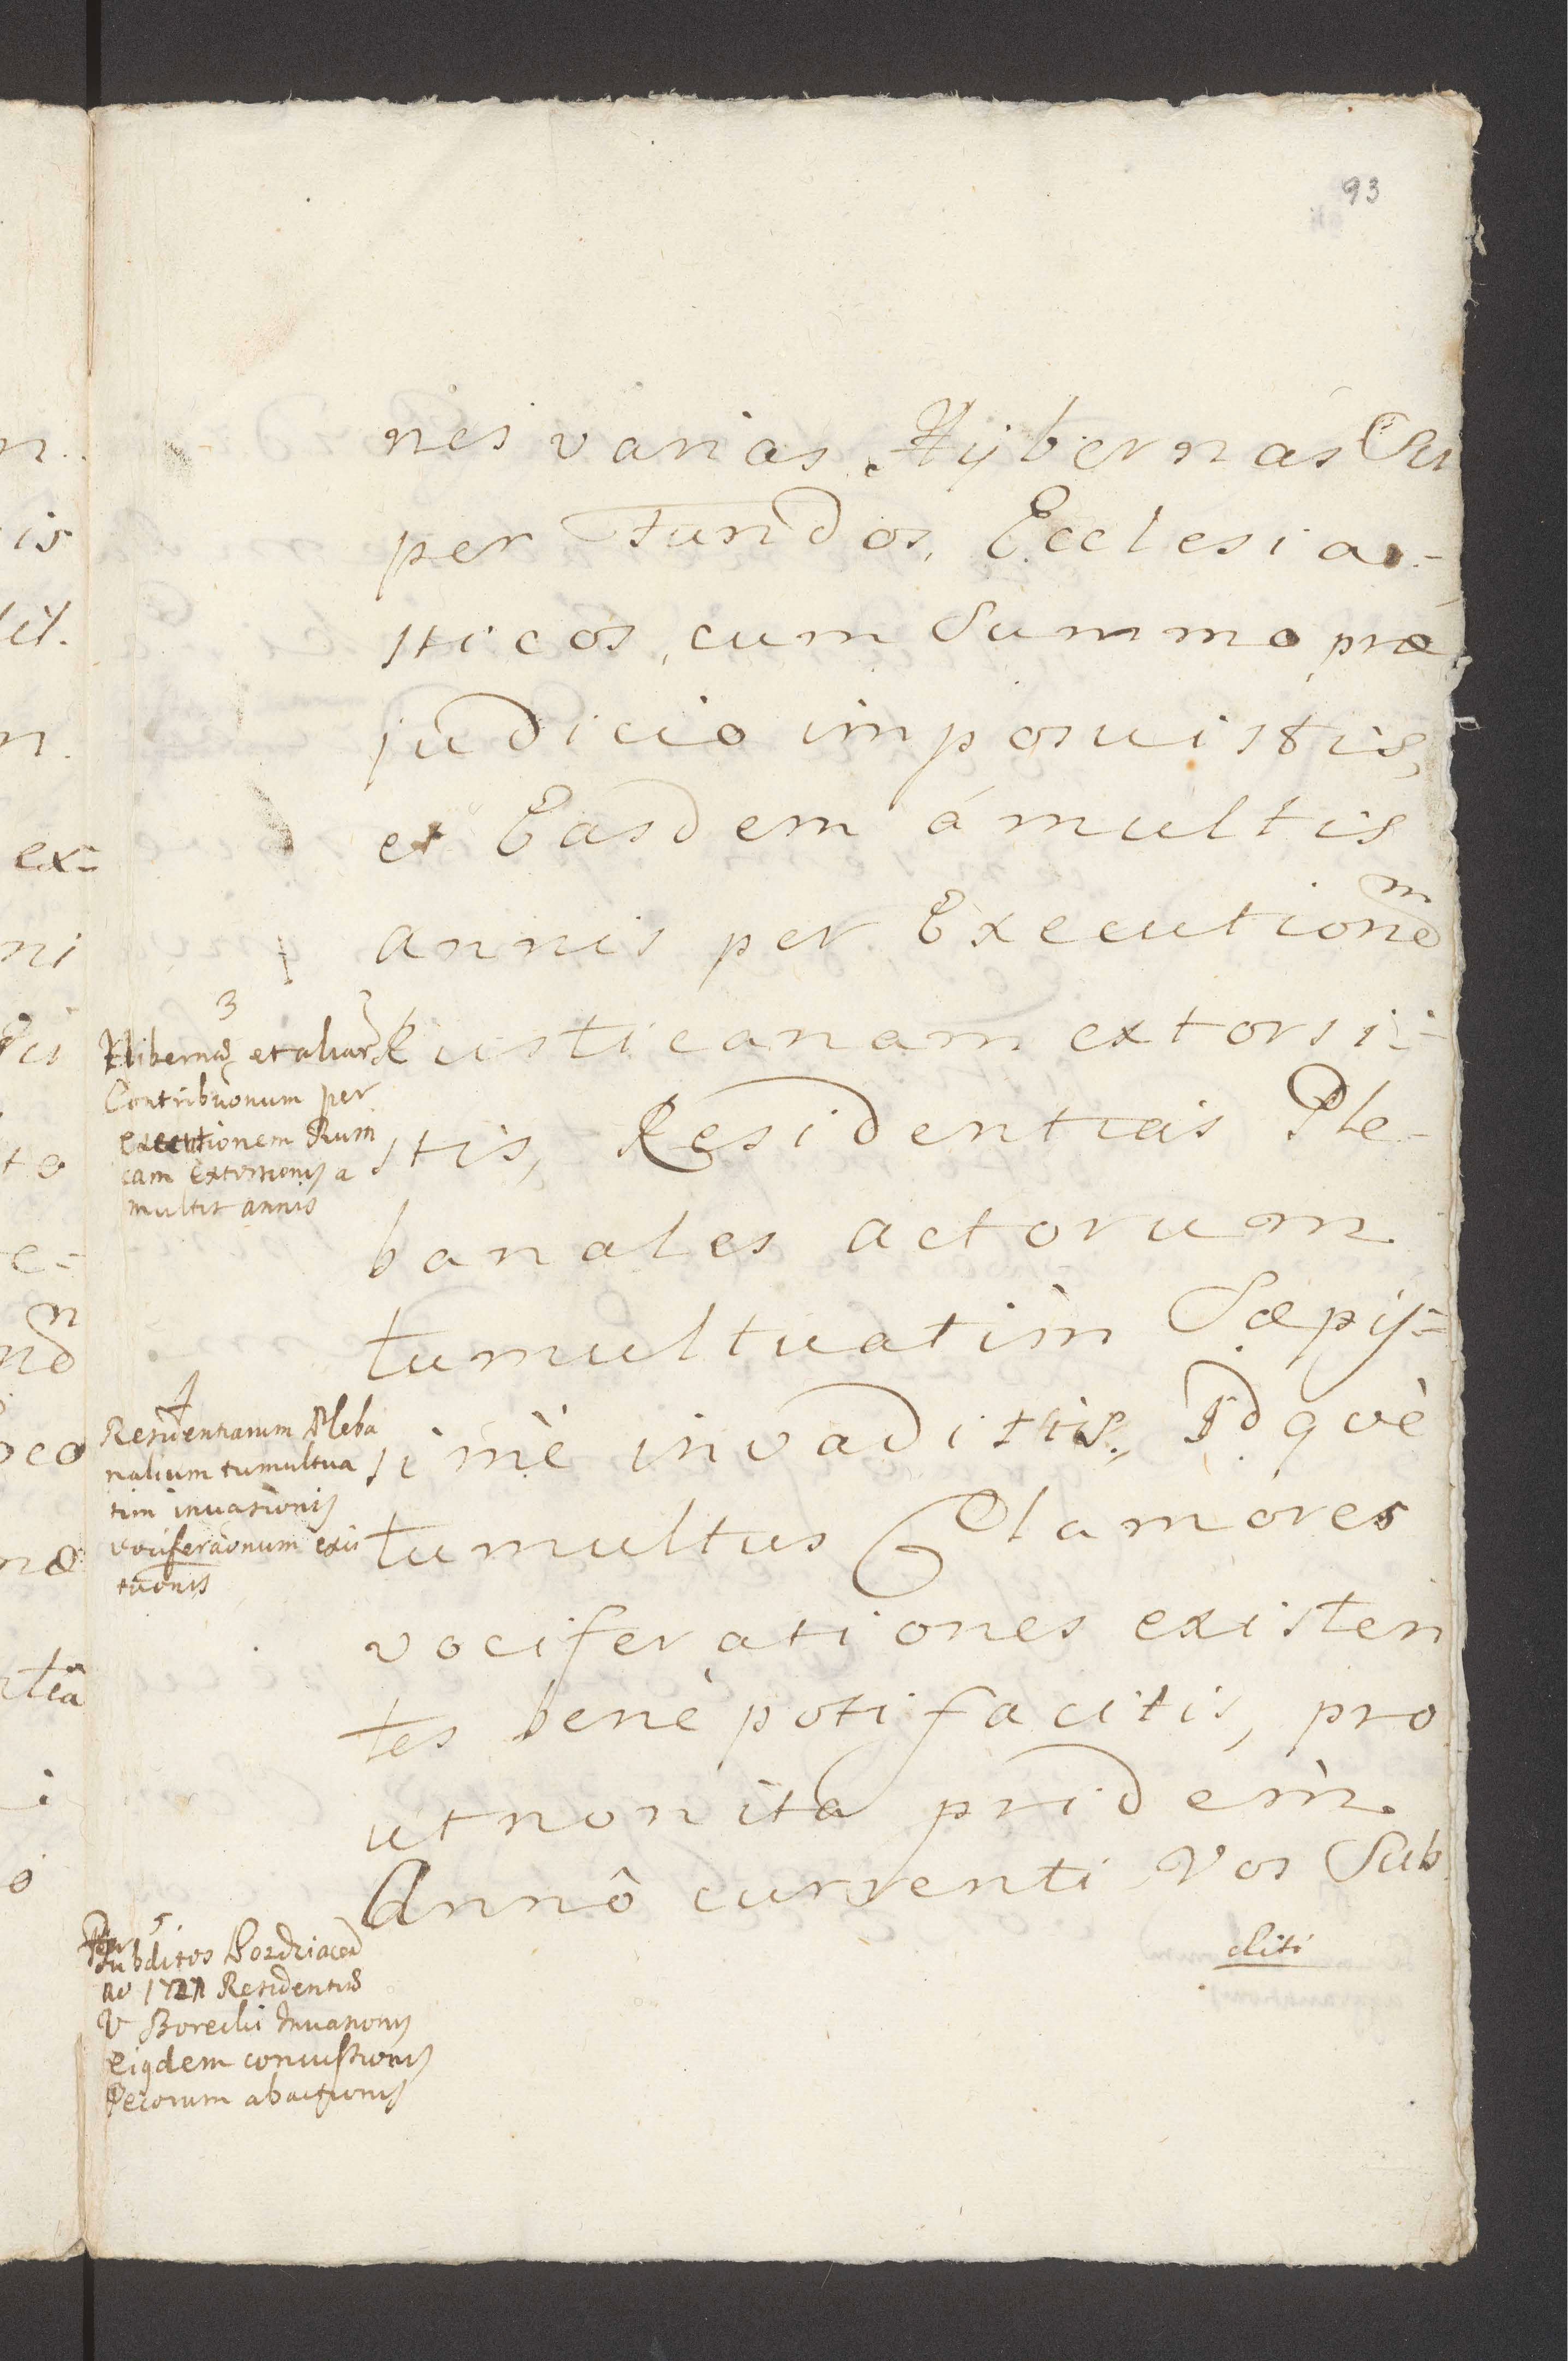 93
nes varias Hybernas Su
per Fundos, Ecclesia-
sticos, cum Summo præ
judicio imposuistis,
et Easdem á multis
annis per Executionem
Rusticanam extorsi-
stis, Residentias Ple-
banales actorum
tumultuatim Sæpis-
simè invadistis, Idquè
tumultus Clamores
vociferationes existen
tes benè poti facitis, pro
ut non ita pridem
Annô currenti Vos Sub
diti
3
Hibernar et aliar
Contribuonum per
executionem Rusti
cam Extorsionis a
multis annis
4
Residentiarum Pleba
nalium tumultua
tim invasionis
vociferaonum exci
taonis
5
Per
Subditos Pozdziacen
ao 1727 Residentiæ
V Borecki Invasionis
eiqdem concussionis
Pecorum abactionis
n.
is
n.
ex=
ni
to
e=
oco
næ